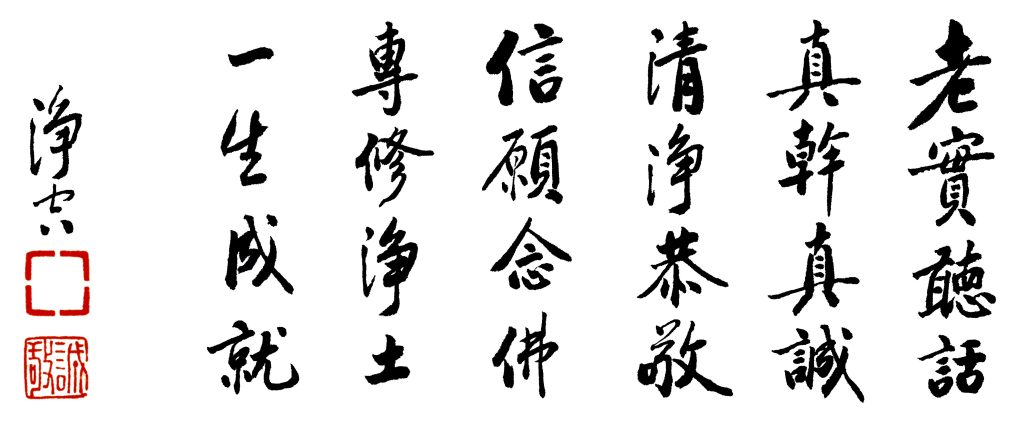 老實聽話
真幹真誠
清淨恭敬
信願念佛
專修淨土
一生成就
淨空
誠敬